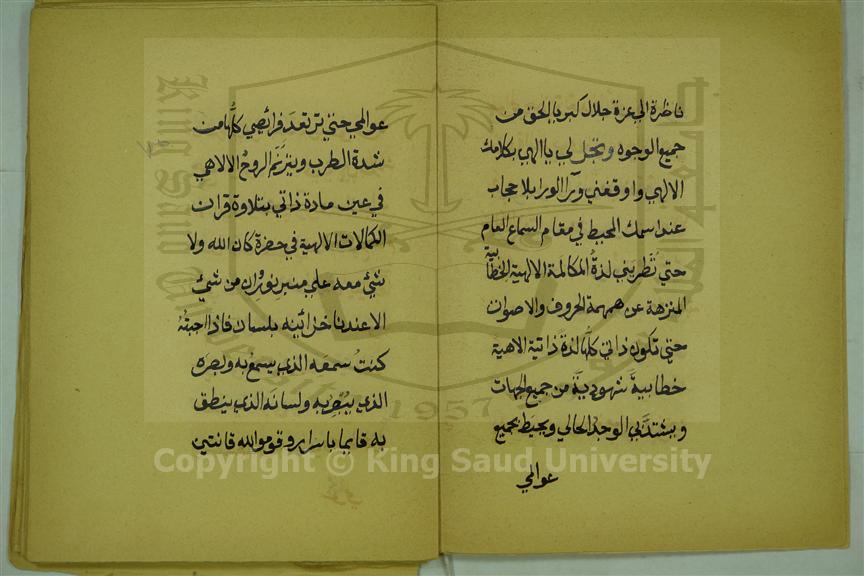 ناظرة الي عزة جلال كبريا الحق من
جميع الوجوه وتجل لي يا الهي بكلامك
الالهي واوقفني ورآ الورا بلا حجاب
عند اسمك المحيط في مقام السماع العام
حتي تطربني لذة المكالمة الالهية الخطابية
المنزهة عن همهمة الحروف والاصوات
حتي تكون ذاتي كلها لذة ذاتية الاهية
خطابية شهودية من جميع الجهات
ويشتد بي الوجد الحالي ويحيط بجميع
عوالمي
عوالمي حتي ترتعد فرائصي كلُّها من
شدة الطرب ويترنم الروح الالاهي
في عين مادة ذاتي بتلاوة قران
الكمالات الالهية في حضرة كان الله ولا
شيئ معه علي منبر نور وان من شيئ
الا عندنا خزائينه بلسان فاذا احببتُهُ
كنتُ سمعَه الذي يسمع به وبصره
الذي يبصر به ولسانه الذي ينطق
به قايما باسرار وقوموا لله قانتين
Copyright © King Saud University
King Saud University
1957